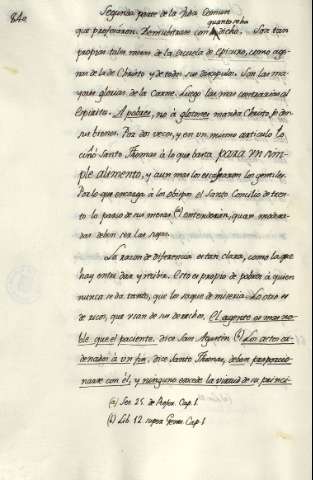 84a
Segunda parte de la Vida Comun
quanto esta
que professaron. Demuestrase con dicha. Son tan
proprias tales mesas de la escuela de Epicuro, como age-
nas de la de Christo y de todos sus discipulos. Son las ma-
yores glorias de la Carne. Luego las mas contrarias al
Espiritu. A pobres, no à glotones manda Christo, se den
sus bienes. Por dos veces, y en un mismo articulo lo
ciñó Santo Thomas à lo que basta para un sim-
ple alimento, y aun mas los estrecharon los gentiles.
Por lo que encarga à los obispos el Santo Concilio de Tren-
to lo parco de sus mesas (a) entenderán, quan modera-
das deben ser las suyas.
La razon de diferencia es tan clara, como la que
hay entre dar y recibir. Esto es propio de pobres à quien
nunca se da tanto, que los saque de miseria. Lo otro es
de ricos, que usan de su derecho. El agente es mas no-
ble que el paciente, dice San Agustin (b) Los actos or-
denados à un fin, dice Santo Thomas, deben proporcio-
narse con él, y ninguno exceda la virtud de su princi-
(a) Ses. 25. de Refor. Cap. 1.
(b) Lib. 12 supra Genes. Cap. 1.